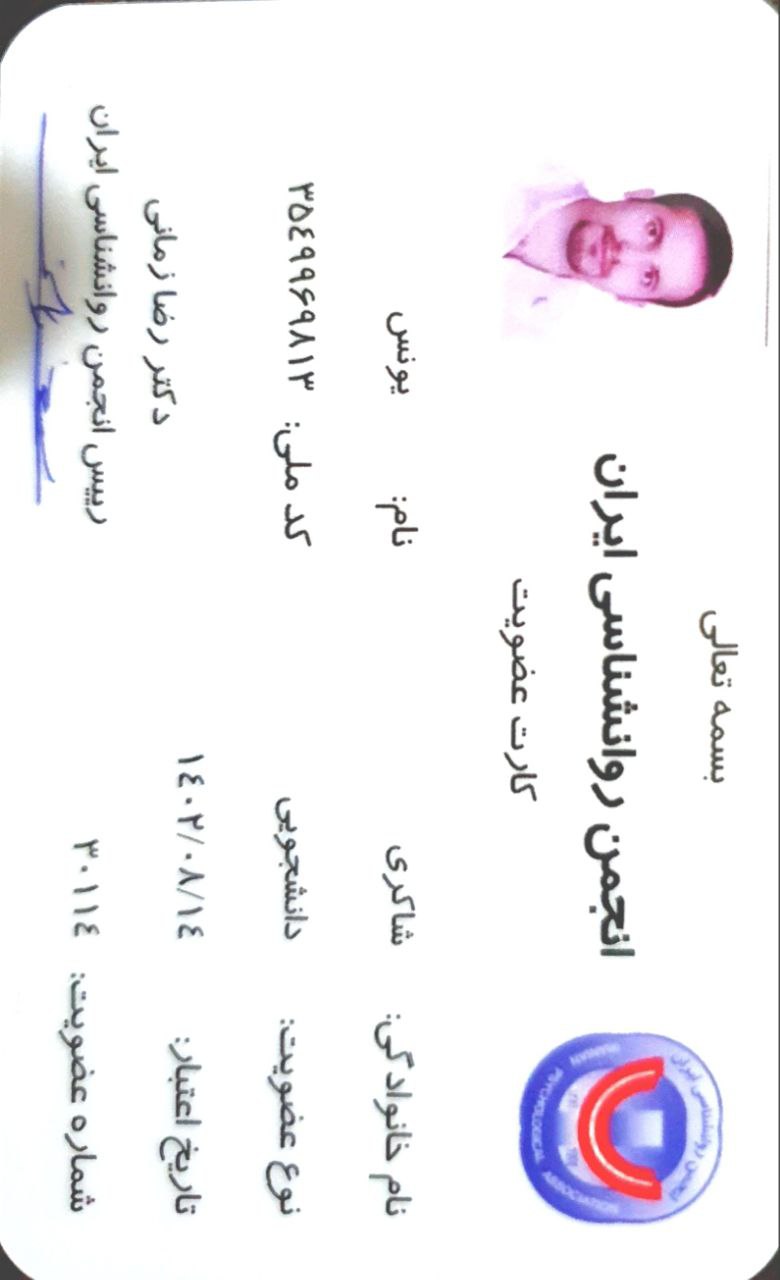 بسمه تعالی
انجمن روانشناسی ایران
کارت عضویت
نام خانوادگی: شاکری نام: یونس
نوع عضویت: دانشجویی کد ملی: ۳۵۴۹۹۶۹۸۱۳
تاریخ اعتبار: ۱۴۰۲/۰۸/۱۴ دکتر رضا زمانی
شماره عضویت: ۳۰۱۱۴ رییس انجمن روانشناسی ایران
انجمن روانشناسی ایران
IRANIAN PSYCHOLOGICAL ASSOCIATION